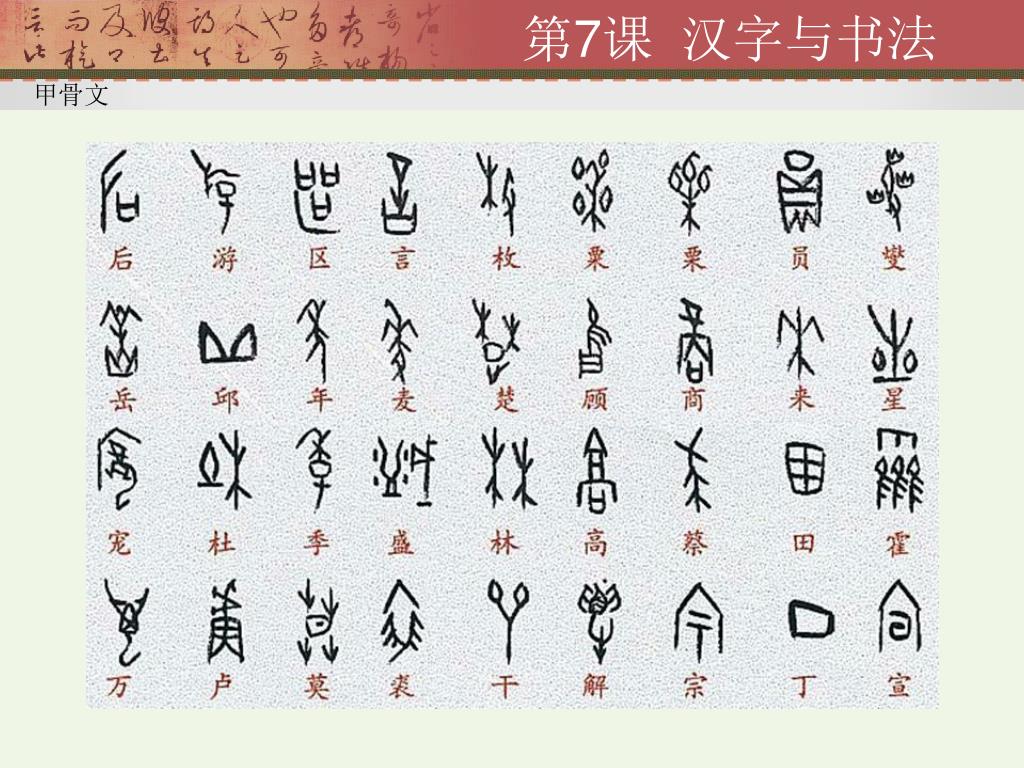 第7课 汉字与书法
甲骨文
后 游 区 言 枚 粟 栗 员 燮
岳 邱 年 麦 楚 顾 商 来 星
宠 杜 季 盛 林 高 蔡 田 霍
万 卢 莫 裘 干 解 宗 丁 宣